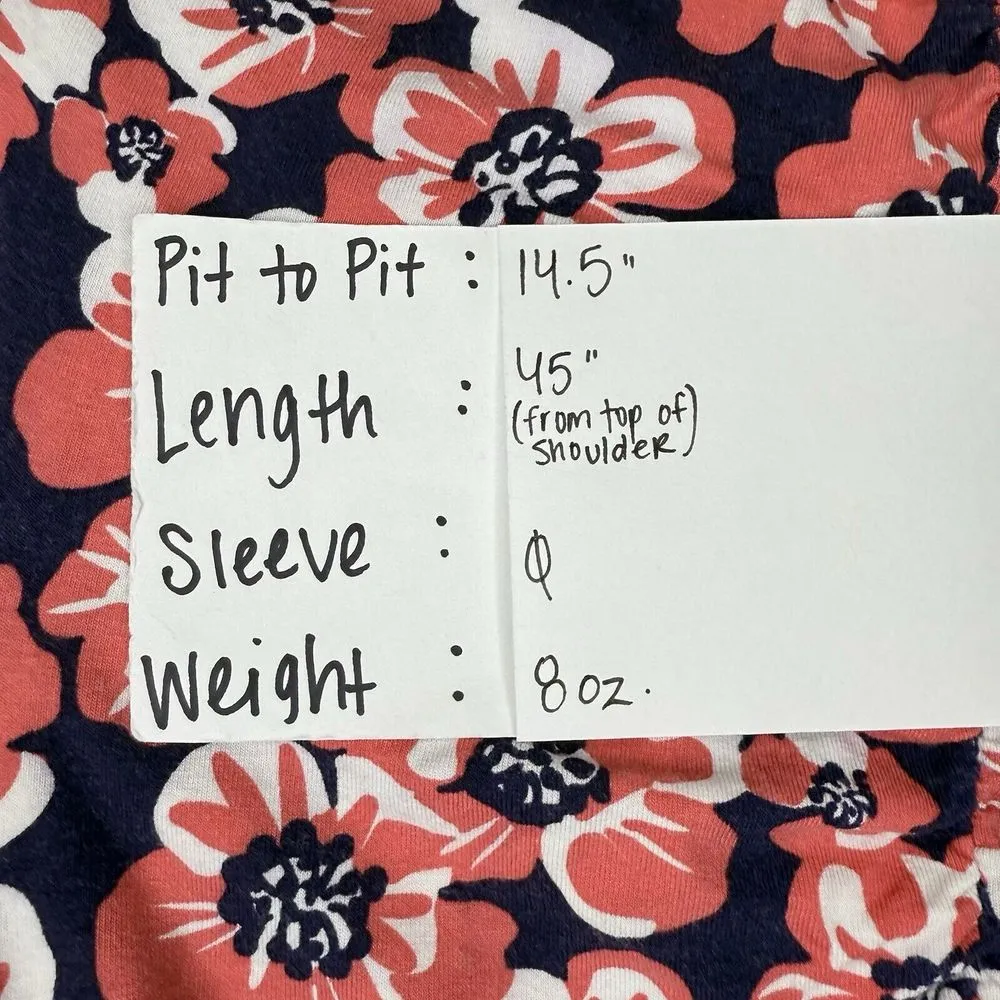 Pit to Pit : 14.5"
Length : 45"
(from top of)
shoulder)
Sleeve : Ø
Weight : 8 oz.